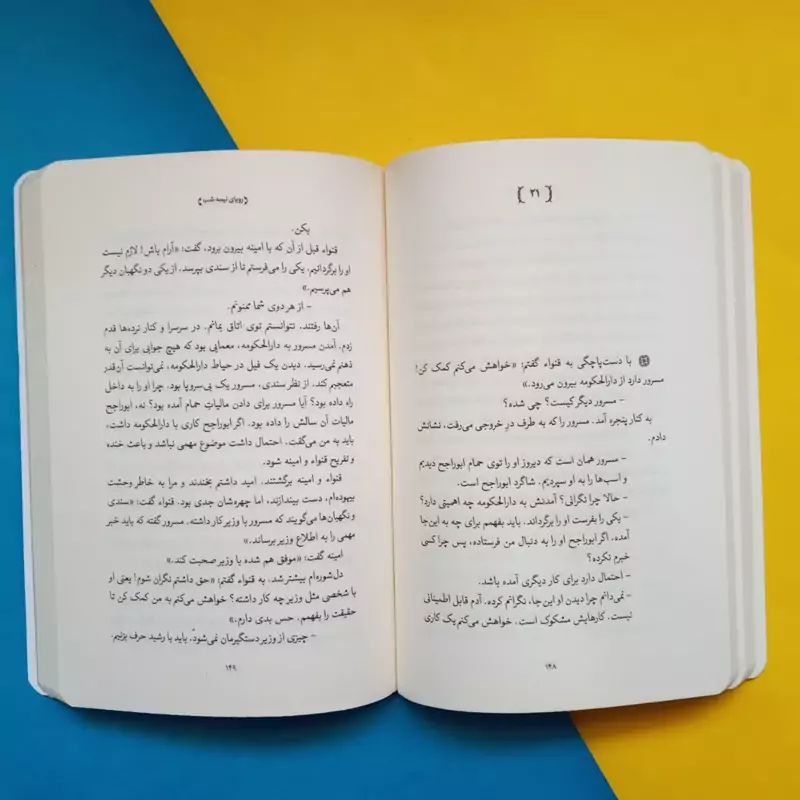 ﴿ ۲۱ ﴾
با دست‌پاچگی به قنواء گفتم: «خواهش می‌کنم کمک کن!
مسرور دارد از دارالحکومه بیرون می‌رود.»
- مسرور دیگر کیست؟ چی شده؟
به کنار پنجره آمد. مسرور را که به طرف درِ خروجی می‌رفت، نشانش
دادم.
- مسرور همان است که دیروز او را توی حمام ابوراجح دیدیم
و اسب‌ها را به او سپردیم. شاگرد ابوراجح است.
- حالا چرا نگرانی؟ آمدنش به دارالحکومه چه اهمیتی دارد؟
- یکی را بفرست او را برگرداند. باید بفهمم برای چه به این‌جا
آمده. اگر ابوراجح او را به دنبال من فرستاده، پس چرا کسی
خبرم نکرده؟
- احتمال دارد برای کار دیگری آمده باشد.
- نمی‌دانم چرا دیدن او این‌جا، نگرانم کرده. آدم قابل اطمینانی
نیست. کارهایش مشکوک است. خواهش می‌کنم یک کاری
۱۴۸
﴿رویای نیمه شب﴾
بکن.
قنواء قبل از آن که با امینه بیرون برود، گفت: «آرام باش! لازم نیست
او را برگردانیم. یکی را می‌فرستم تا از سندی بپرسد. از یکی دو نگهبان دیگر
هم می‌پرسیم.»
- از هر دوی شما ممنونم.
آن‌ها رفتند. نتوانستم توی اتاق بمانم. در سرسرا و کنار نرده‌ها قدم
زدم. آمدن مسرور به دارالحکومه، معمایی بود که هیچ جوابی برای آن به
ذهنم نمی‌رسید. دیدن یک فیل در حیاط دارالحکومه، نمی‌توانست آن‌قدر
متعجبم کند. از نظر سندی، مسرور یک بی‌سروپا بود. چرا او را به داخل
راه داده بود؟ آیا مسرور برای دادن مالیاتِ حمام آمده بود؟ نه، ابوراجح
مالیات آن سالش را داده بود. اگر ابوراجح کاری با دارالحکومه داشت،
باید به من می‌گفت. احتمال داشت موضوع مهمی نباشد و باعث خنده
و تفریح قنواء و امینه شود.
قنواء و امینه برگشتند. امید داشتم بخندند و مرا به خاطر وحشت
بیهوده‌ام، دست بیندازند، اما چهره‌شان جدی بود. قنواء گفت: «سندی و
نگهبان‌ها می‌گویند که مسرور با وزیر کار داشته. مسرور گفته که باید خبر
مهمی را به اطلاع وزیر برساند.»
امینه گفت: «موفق هم شده با وزیر صحبت کند.»
دل‌شوره‌ام بیشتر شد. به قنواء گفتم: «حق داشتم نگران شوم! یعنی او
با شخصی مثل وزیر چه کار داشته؟ خواهش می‌کنم به من کمک کن تا
حقیقت را بفهمم. حس بدی دارم.»
- چیزی از وزیر دستگیرمان نمی‌شود. باید با رشید حرف بزنیم.
۱۴۹